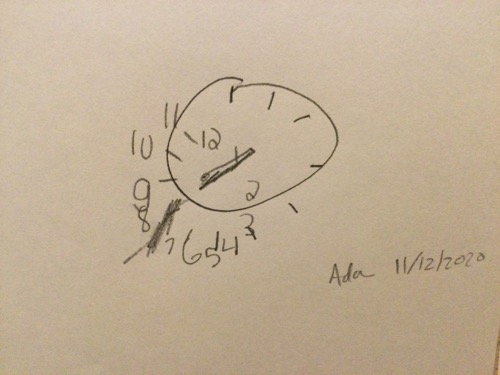 11
12
10
1
9
2
8
3
7 6 5 4
Ada 11/12/2020